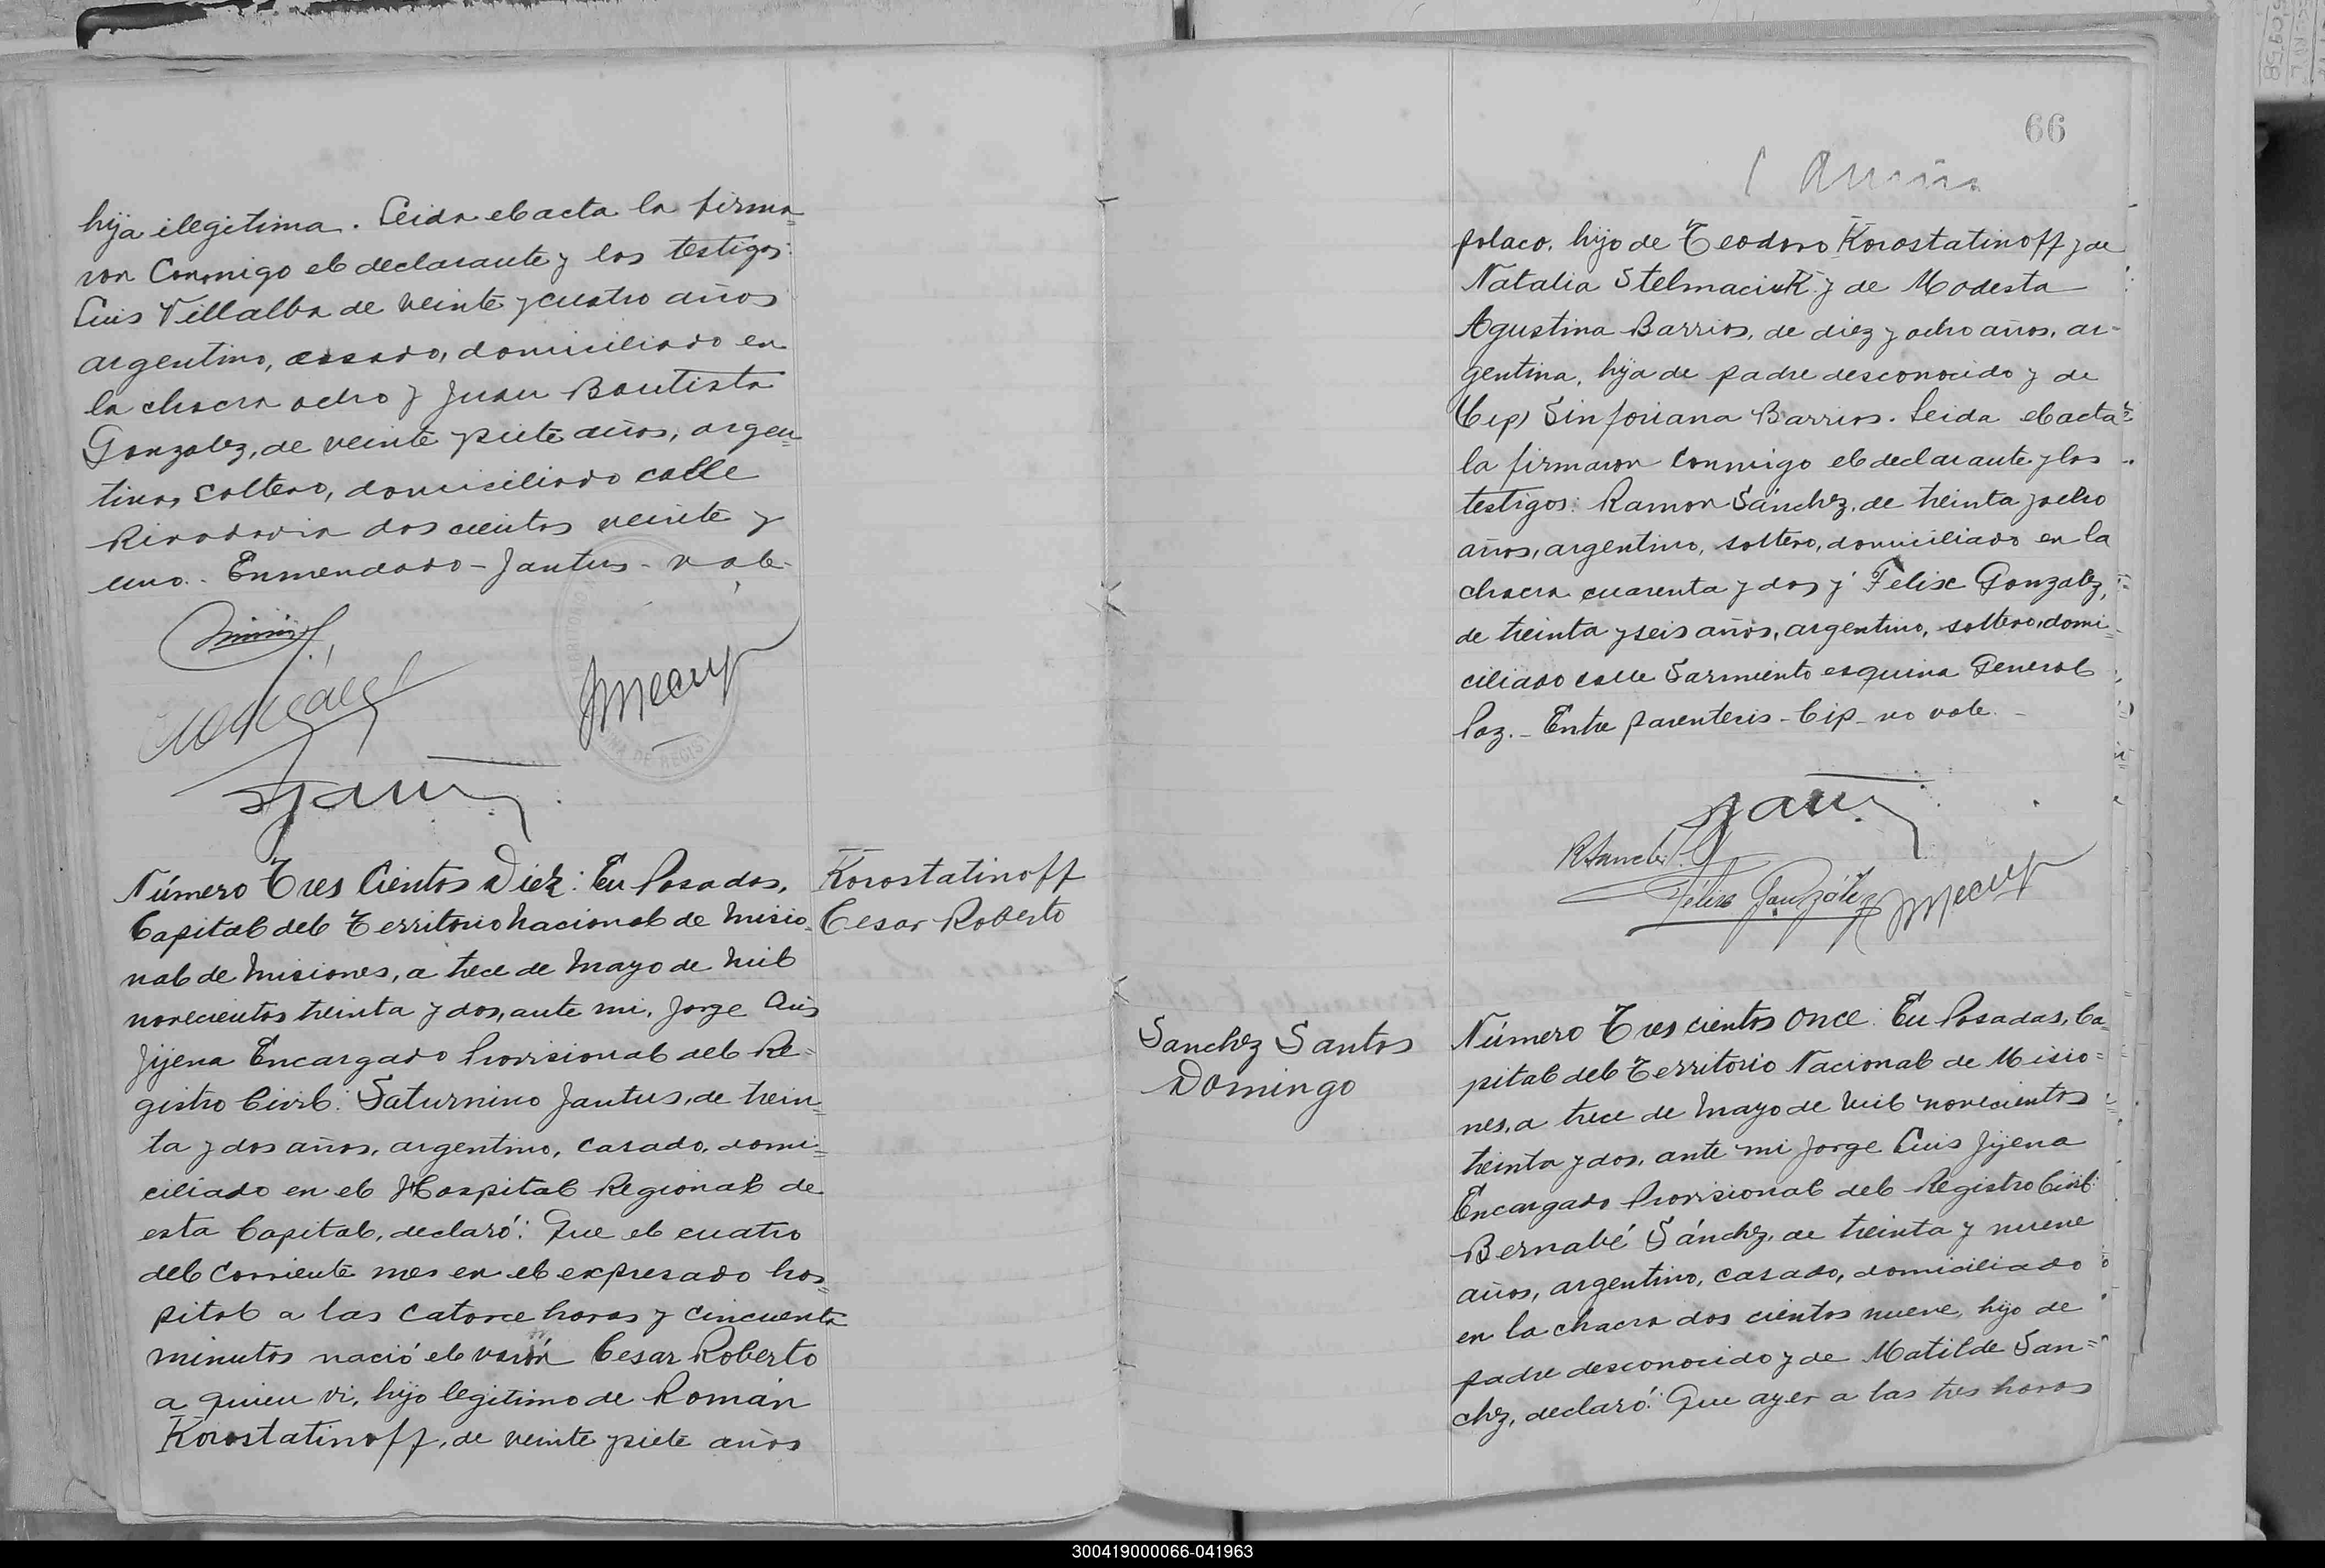 hija ilegitima. Leida el acta la firma=
ron conmigo el declarante y los testigos:
Luis Villalba de veinte y cuatro años
argentino, casado, domiciliado en
la chacra ocho y Juan Bautista
Gonzalez, de veinte y siete años, argen=
tino, soltero, domiciliado calle
Rivadavia dos cientos veinte y
uno. Enmendado - Jantus - vale.
Número Tres Cientos Diez: En Posadas,
Capital del Territorio Nacional de Misio
nal de Misiones, a trece de Mayo de mil
novecientos treinta y dos, ante mi, Jorge Luis
Jijena Encargado Provisional del Re=
gistro Civil: Saturnino Jantus, de trein=
ta y dos años, argentino, casado, domi=
ciliado en el Hospital Regional de
esta Capital, declaró: Que el cuatro
del corriente mes en el expresado hos=
pital a las catorce horas y cincuenta
minutos nació el varón Cesar Roberto
a quien vi, hijo legitimo de Román
Korostatinoff, de veinte y siete años
Korostatinoff
Cesar Roberto
66
polaco, hijo de Teodoro Korostatinoff y de
Natalia Stelmaciuk y de Modesta
Agustina Barrios, de diez y ocho años, ar-
gentina, hija de padre desconocido y de
(Cip) Sinforiana Barrios. Leida el acta
la firmaron conmigo el declarante y los
testigos: Ramon Sánchez, de treinta y ocho
años, argentino, soltero, domiciliado en la
chacra cuarenta y dos y Felix Gonzalez,
de treinta y seis años, argentino, soltero, domi=
ciliado calle Sarmiento esquina General
Paz. - Entre parentesis - Cip - no vale. -
RSanchez
Félix González
Sanchez Santos
Domingo
Número Tres cientos Once: En Posadas, Ca=
pital del Territorio Nacional de Misio=
nes, a trece de Mayo de mil novecientos
treinta y dos, ante mi Jorge Luis Jijena
Encargado Provisional del Registro Civil:
Bernabé Sánchez, de treinta y nueve
años, argentino, casado, domiciliado
en la chacra dos cientos nueve, hijo de
padre desconocido y de Matilde San=
chez, declaró: Que ayer a las tres horas
300419000066-041963